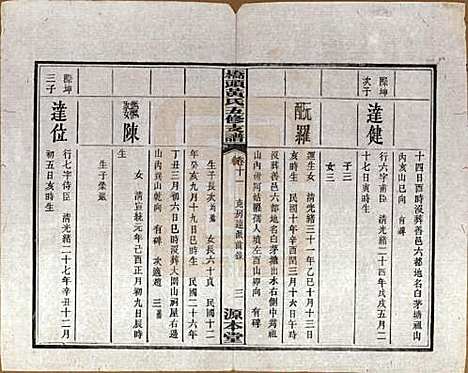 十四日酉時沒葬善邑六都地名白茅塘祖山
內亥山巳向　有碑
熙坤次子
達健
行六字甫臣　清光緒二十四年戊戌五月二
十七日亥時生
子二
女三
配羅
運生女　清光緒三十一年乙巳十月十三
亥時生　民國十年辛酉三月十六日
沒葬善邑六都地名白茅塘出水右側中灣祖
山內　附阿姑羅孺人墳左酉山卯向　有碑
橋頭黃氏五修支譜
卷十一
三
源本堂
生子長次　女長六十貞　民國十二
年癸亥九月十九日巳時生　民國二十六年
丁丑三月初六日巳時沒葬大園山祠屋右
山內　山　向　有碑　次適趙　三
繼娶陳
女　清宣統元年己酉正月初九日辰時
生
生子榮
熙坤三子
達位
行七字侍臣　清光緒二十七年辛丑十二月
初五日亥時生